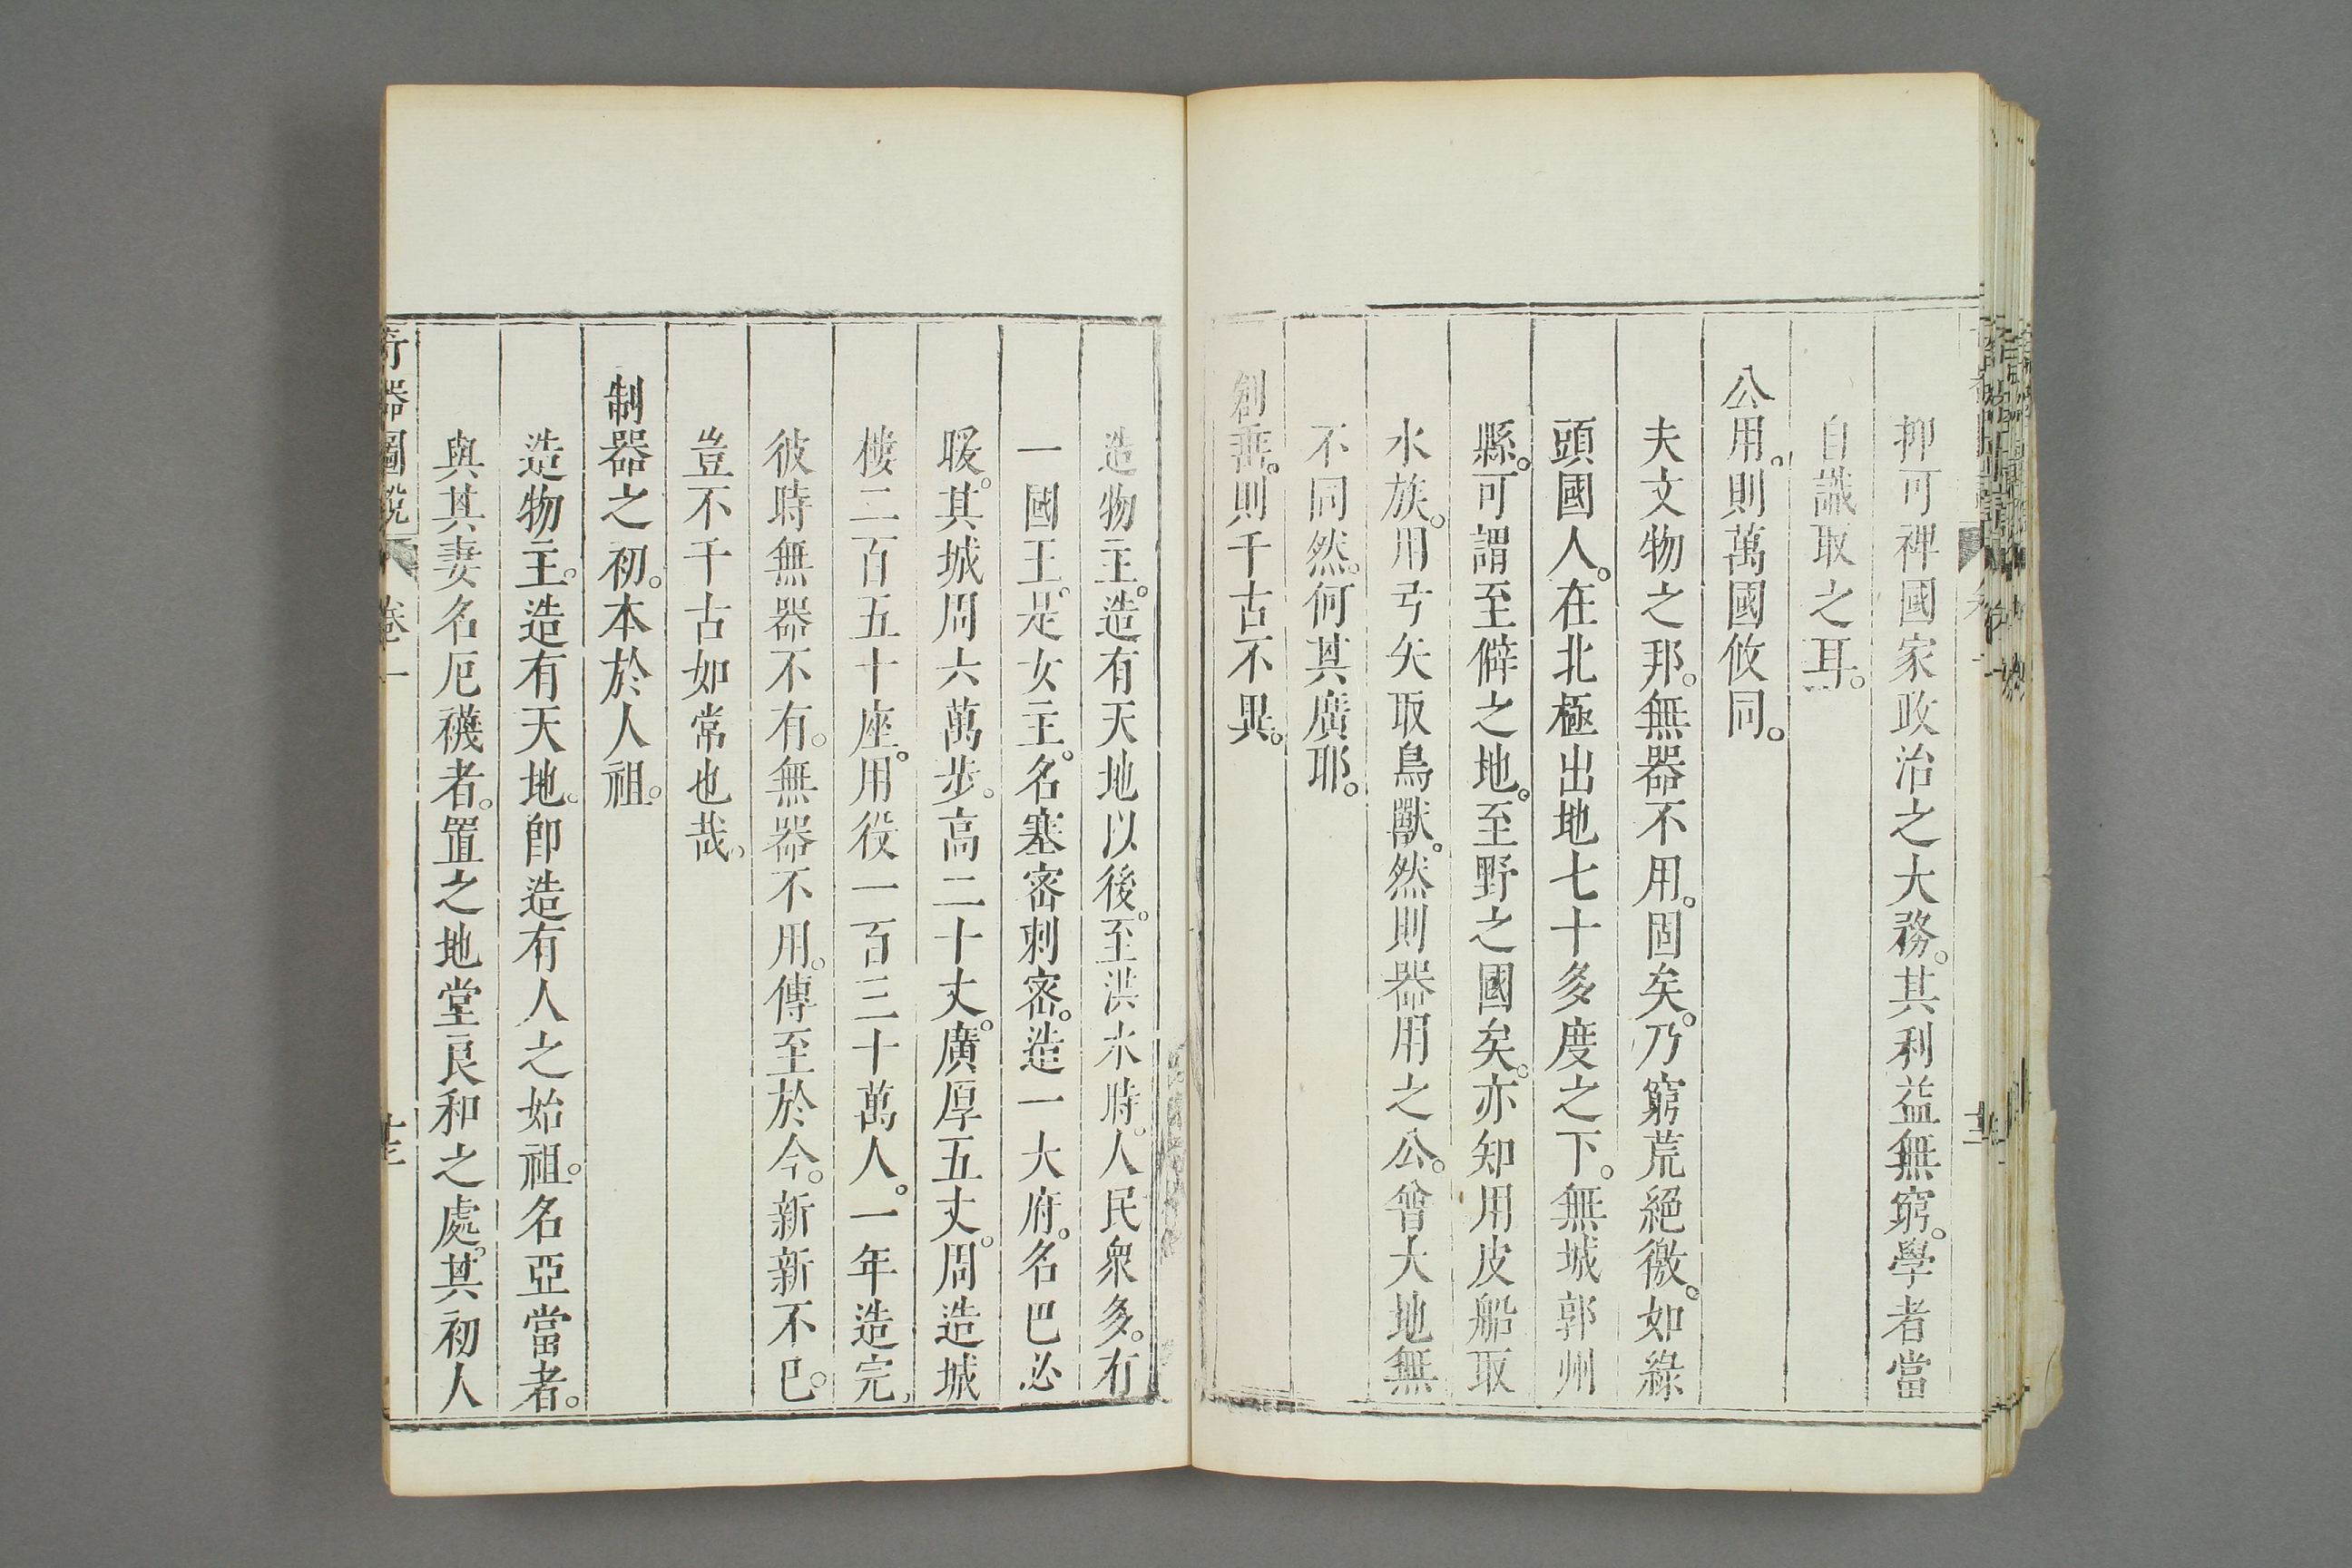 抑可裨國家政治之大務。其利益無窮。學者當
自識取之耳。
公用。則萬國攸同。
夫文物之邦。無器不用。固矣。乃窮荒絕徼。如綠
頭國人。在北極出地七十多度之下。無城郭州
縣。可謂至僻之地。至野之國矣。亦知用皮船取
水族。用弓矢取鳥獸。然則器用之公。曾大地無
不同然。何其廣耶。
創垂。則千古不異。
造物主。造有天地以後。至洪水時。人民衆多。有
一國王。是女主。名塞密剌密。造一大府。名巴必
暖。其城周六萬步。高二十丈。廣厚五丈。周造城
樓二百五十座。用役一百三十萬人。一年造完。
彼時無器不有。無器不用。傳至於今。新新不已。
豈不千古如常也哉。
制器之初。本於人祖。
造物主。造有天地。即造有人之始祖。名亞當者。
與其妻名厄襪者。置之地堂良和之處。其初人
奇器圖說 卷一